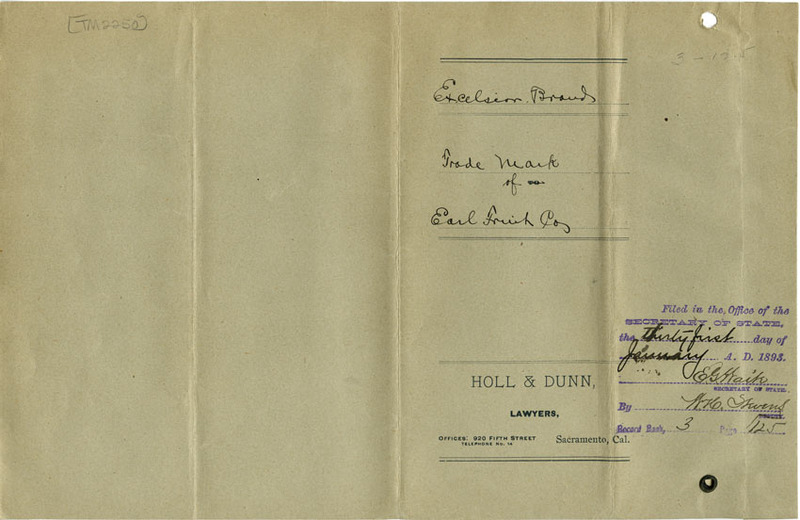 [TM2250]
3 - 125
Excelsior Brand
Trade Mark
of
Earl Fruit Co
HOLL & DUNN,
LAWYERS,
OFFICES: 920 FIFTH STREET
TELEPHONE No. 14
Sacramento, Cal.
Filed in the Office of the
SECRETARY OF STATE,
the thirty first day of
January A. D. 1893.
E G Waite
SECRETARY OF STATE.
By
DEPUTY.
Record Book, 3 Page 125